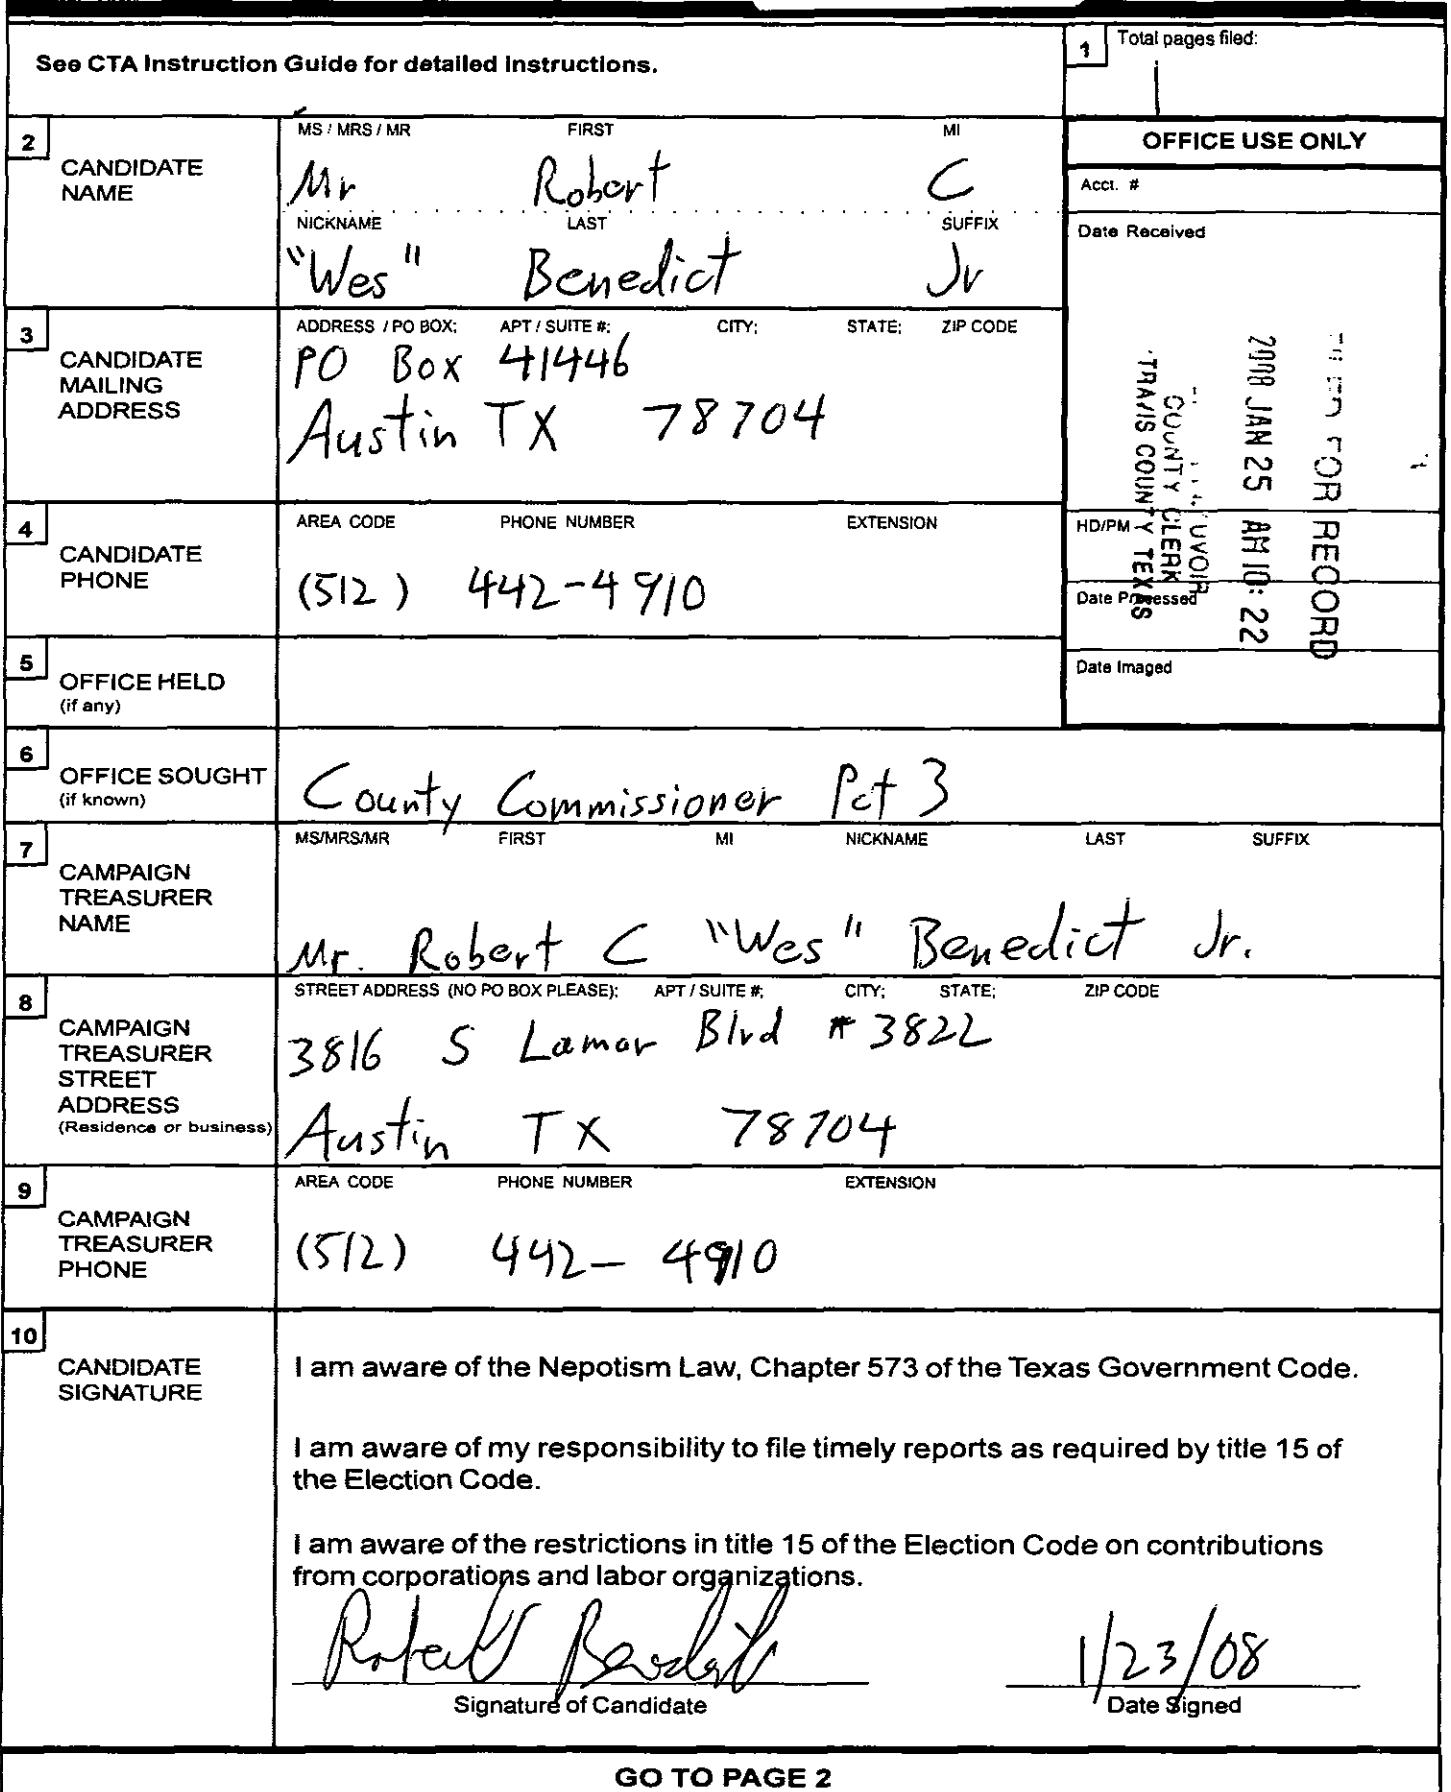 See CTA Instruction Guide for detailed instructions.
1 Total pages filed:
1
2 CANDIDATE NAME
MS / MRS / MR FIRST MI
Mr Robert C
NICKNAME LAST SUFFIX
"Wes" Benedict Jr
OFFICE USE ONLY
Acct. #
Date Received
FOR RECORD
2008 JAN 25 AM 10:22
COUNTY CLERK
TRAVIS COUNTY TEXAS
HD/PM
Date Processed
Date Imaged
3 CANDIDATE MAILING ADDRESS
ADDRESS / PO BOX; APT / SUITE #; CITY; STATE; ZIP CODE
PO Box 41446
Austin TX 78704
4 CANDIDATE PHONE
AREA CODE PHONE NUMBER EXTENSION
(512) 442-4910
5 OFFICE HELD
(if any)
6 OFFICE SOUGHT
(if known)
County Commissioner Pct 3
7 CAMPAIGN TREASURER NAME
MS/MRS/MR FIRST MI NICKNAME LAST SUFFIX
Mr. Robert C "Wes" Benedict Jr.
8 CAMPAIGN TREASURER STREET ADDRESS
(Residence or business)
STREET ADDRESS (NO PO BOX PLEASE); APT / SUITE #; CITY; STATE; ZIP CODE
3816 S Lamar Blvd # 3822
Austin TX 78704
9 CAMPAIGN TREASURER PHONE
AREA CODE PHONE NUMBER EXTENSION
(512) 442-4910
10 CANDIDATE SIGNATURE
I am aware of the Nepotism Law, Chapter 573 of the Texas Government Code.
I am aware of my responsibility to file timely reports as required by title 15 of
the Election Code.
I am aware of the restrictions in title 15 of the Election Code on contributions
from corporations and labor organizations.
1/23/08
Signature of Candidate Date Signed
GO TO PAGE 2